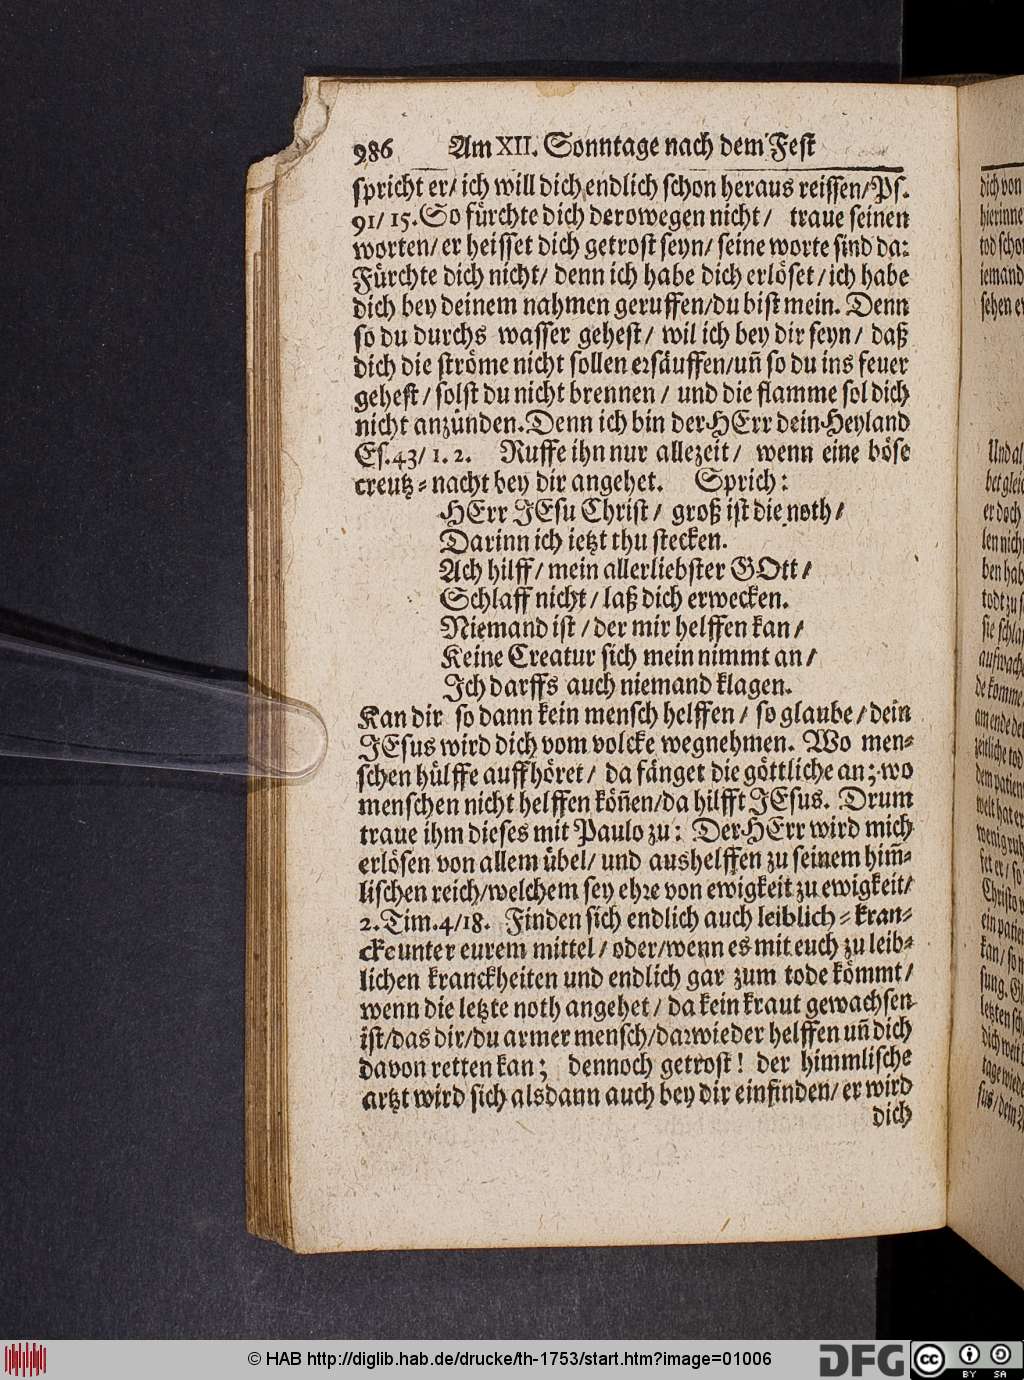 986 Am XII. Sonntage nach dem Fest
spricht er/ ich will dich endlich schon heraus reissen/Ps.
91/ 15. So fürchte dich derowegen nicht/ traue seinen
worten/ er heisset dich getrost seyn/ seine worte sind da:
Fürchte dich nicht/ denn ich habe dich erlöset/ich habe
dich bey deinem nahmen geruffen/du bist mein. Denn
so du durchs wasser gehest/ wil ich bey dir seyn/ daß
dich die ströme nicht sollen ersäuffen/uñ so du ins feuer
gehest/ solst du nicht brennen/ und die flamme sol dich
nicht anzünden. Denn ich bin der HErr dein Heyland
Es. 43/ 1. 2. Ruffe ihn nur allezeit/ wenn eine böse
creutz-nacht bey dir angehet. Sprich:
HErr JEsu Christ/ groß ist die noth/
Darinn ich ietzt thu stecken.
Ach hilff/ mein allerliebster GOtt/
Schlaff nicht/ laß dich erwecken.
Niemand ist/ der mir helffen kan/
Keine Creatur sich mein nimmt an/
Ich darffs auch niemand klagen.
Kan dir so dann kein mensch helffen/ so glaube/ dein
JEsus wird dich vom volcke wegnehmen. Wo men-
schen hülffe auffhöret/ da fänget die göttliche an; wo
menschen nicht helffen köñen/da hilfft JEsus. Drum
traue ihm dieses mit Paulo zu: Der HErr wird mich
erlösen von allem übel/ und aushelffen zu seinem him̃-
lischen reich/welchem sey ehre von ewigkeit zu ewigkeit/
2. Tim. 4/18. Finden sich endlich auch leiblich-kran-
cke unter eurem mittel/ oder/wenn es mit euch zu leib-
lichen kranckheiten und endlich gar zum tode kömmt/
wenn die letzte noth angehet/ da kein kraut gewachsen
ist/das dir/du armer mensch/darwieder helffen uñ dich
davon retten kan; dennoch getrost! der himmlische
artzt wird sich alsdann auch bey dir einfinden/ er wird
dich
dich von
hierinne
tod scho
iemand
sehen e
Und al
bet gleic
er doch
len nich
ben hab
todt zu s
sie schla
aufwach
de komme
am ende de
zeitliche tod
dem patien
welt hat er
wenig ruh
set er/ so
Christo
ein patie
kan/ so
sung.
letzten sch
dich weit
tage wied
sus/dein
© HAB http://diglib.hab.de/drucke/th-1753/start.htm?image=01006
DFG
cc
BY SA